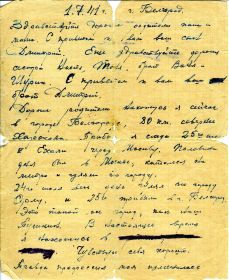 1.7.41 г. г. Белгород.
Здравствуйте дорогие родители папа и
мама. С приветом к вам ваш сын
Дмитрий. Ещё здравствуйте дорогие
сестры Настя Тоня брат Ваня
Шурик. С приветом к вам ваш
брат Дмитрий.
Дорогие родители нахожусь я сейчас
в городе Белгород. 80 км. севернее
Харькова. Прибыл я сюда 25го
Ехали через Москву. Половину
дня был в Москве, катался на
метро и гулял по городу.
24го июня день гулял по городу
Орлу, и 25го прибыли в г. Белгород.
Это такой же город, как наш
Пушкин. В настоящее время
я нахожусь в
Чувствую себя хорошо.
профессия моя